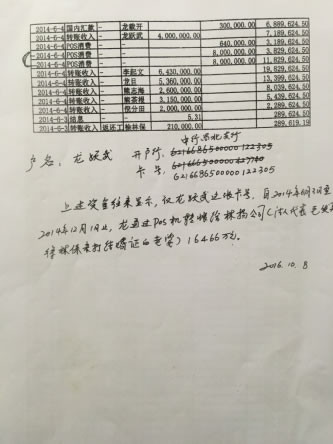 2014-6-4 国内汇款 - 龙毅开 300,000.00 6,889,624.50
2014-6-4 转账收入 - 龙跃武 4,000,000.00 7,189,624.50
2014-6-4 POS消费 - 640,000.00 3,189,624.50
2014-6-4 POS消费 - 8,000,000.00 3,829,624.50
2014-6-4 POS消费 - 8,000,000.00 11,829,624.50
2014-6-4 转账收入 - 李起文 6,430,000.00 19,829,624.50
2014-6-4 转账收入 - 龙日 5,360,000.00 13,399,624.50
2014-6-4 转账收入 - 熊志海 2,600,000.00 8,039,624.50
2014-6-4 转账收入 - 熊荟报 3,150,000.00 5,439,624.50
2014-6-4 转账收入 - 倪分田 2,000,000.00 2,289,624.50
2014-6-3 结息 - 5.31 289,624.50
2014-6-3 转账收入 返还工 徐林保 210,000.00 289,619.19
户名:龙跃武 开户行:
卡号:
6216686500000122305
上述资金结果显示,仅龙跃武这张卡号,自2014年6月3日至
2014年12月1日止,龙通过POS机转账给 公司(法人代表
徐林保 ) 16466万元。
2016.10.8